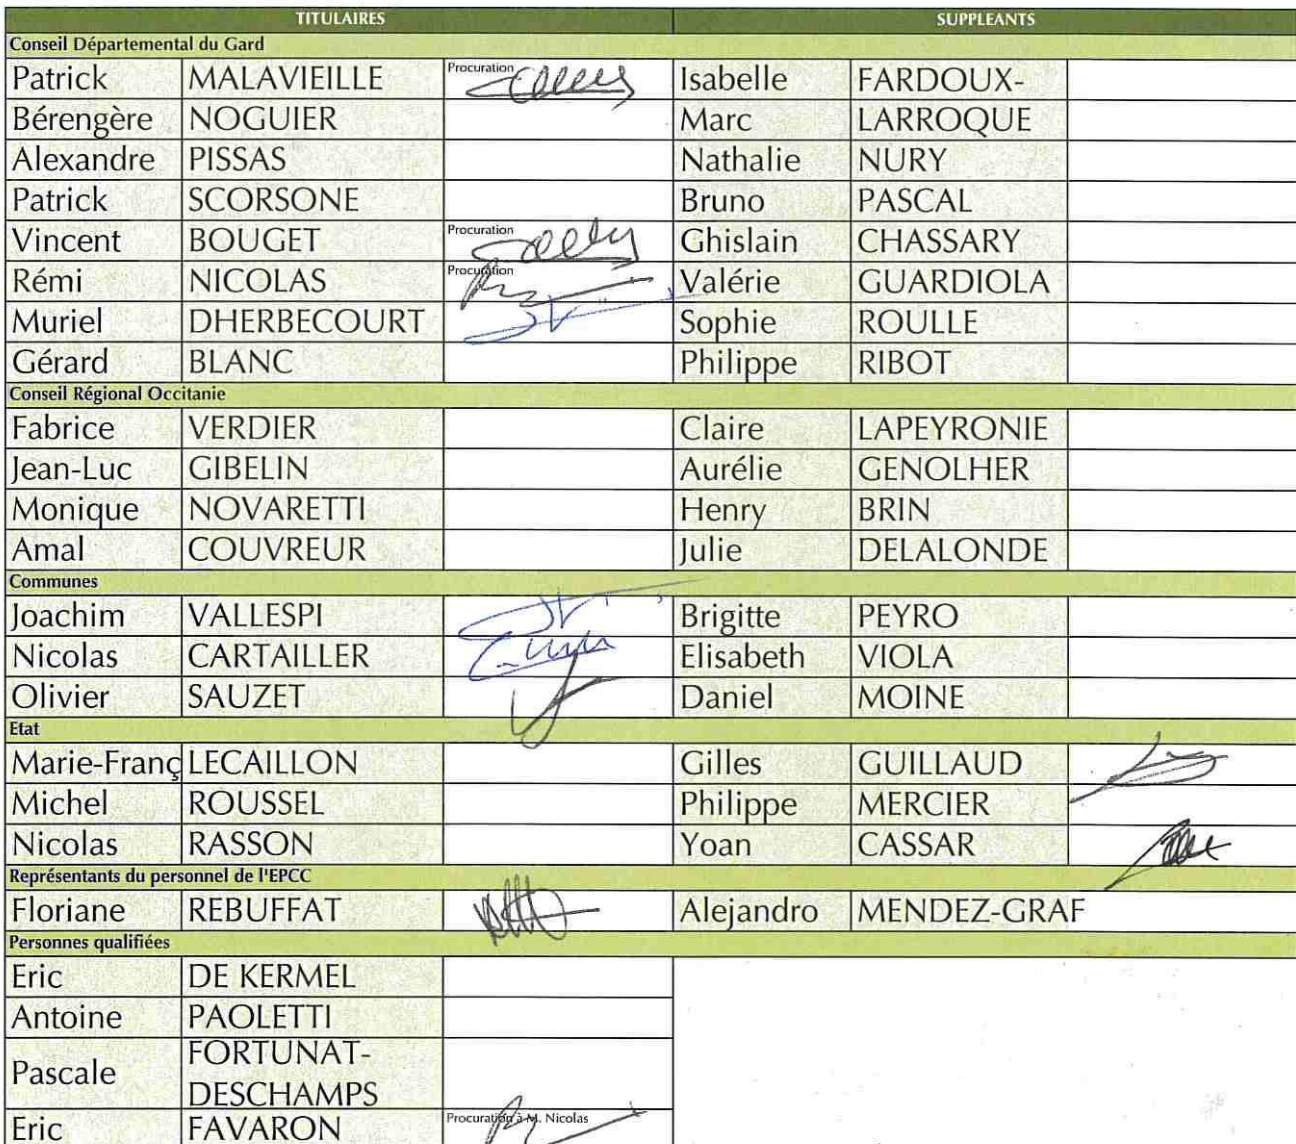 TITULAIRES SUPPLEANTS
Conseil Départemental du Gard
Patrick MALAVIEILLE Procuration Isabelle FARDOUX-
Bérengère NOGUIER Marc LARROQUE
Alexandre PISSAS Nathalie NURY
Patrick SCORSONE Bruno PASCAL
Vincent BOUGET Procuration Ghislain CHASSARY
Rémi NICOLAS Procuration Valérie GUARDIOLA
Muriel DHERBECOURT Sophie ROULLE
Gérard BLANC Philippe RIBOT
Conseil Régional Occitanie
Fabrice VERDIER Claire LAPEYRONIE
Jean-Luc GIBELIN Aurélie GENOLHER
Monique NOVARETTI Henry BRIN
Amal COUVREUR Julie DELALONDE
Communes
Joachim VALLESPI Brigitte PEYRO
Nicolas CARTAILLER Elisabeth VIOLA
Olivier SAUZET Daniel MOINE
Etat
Marie-Franç LECAILLON Gilles GUILLAUD
Michel ROUSSEL Philippe MERCIER
Nicolas RASSON Yoan CASSAR
Représentants du personnel de l'EPCC
Floriane REBUFFAT Alejandro MENDEZ-GRAF
Personnes qualifiées
Eric DE KERMEL
Antoine PAOLETTI
Pascale FORTUNAT-
DESCHAMPS
Eric FAVARON Procuration à M. Nicolas